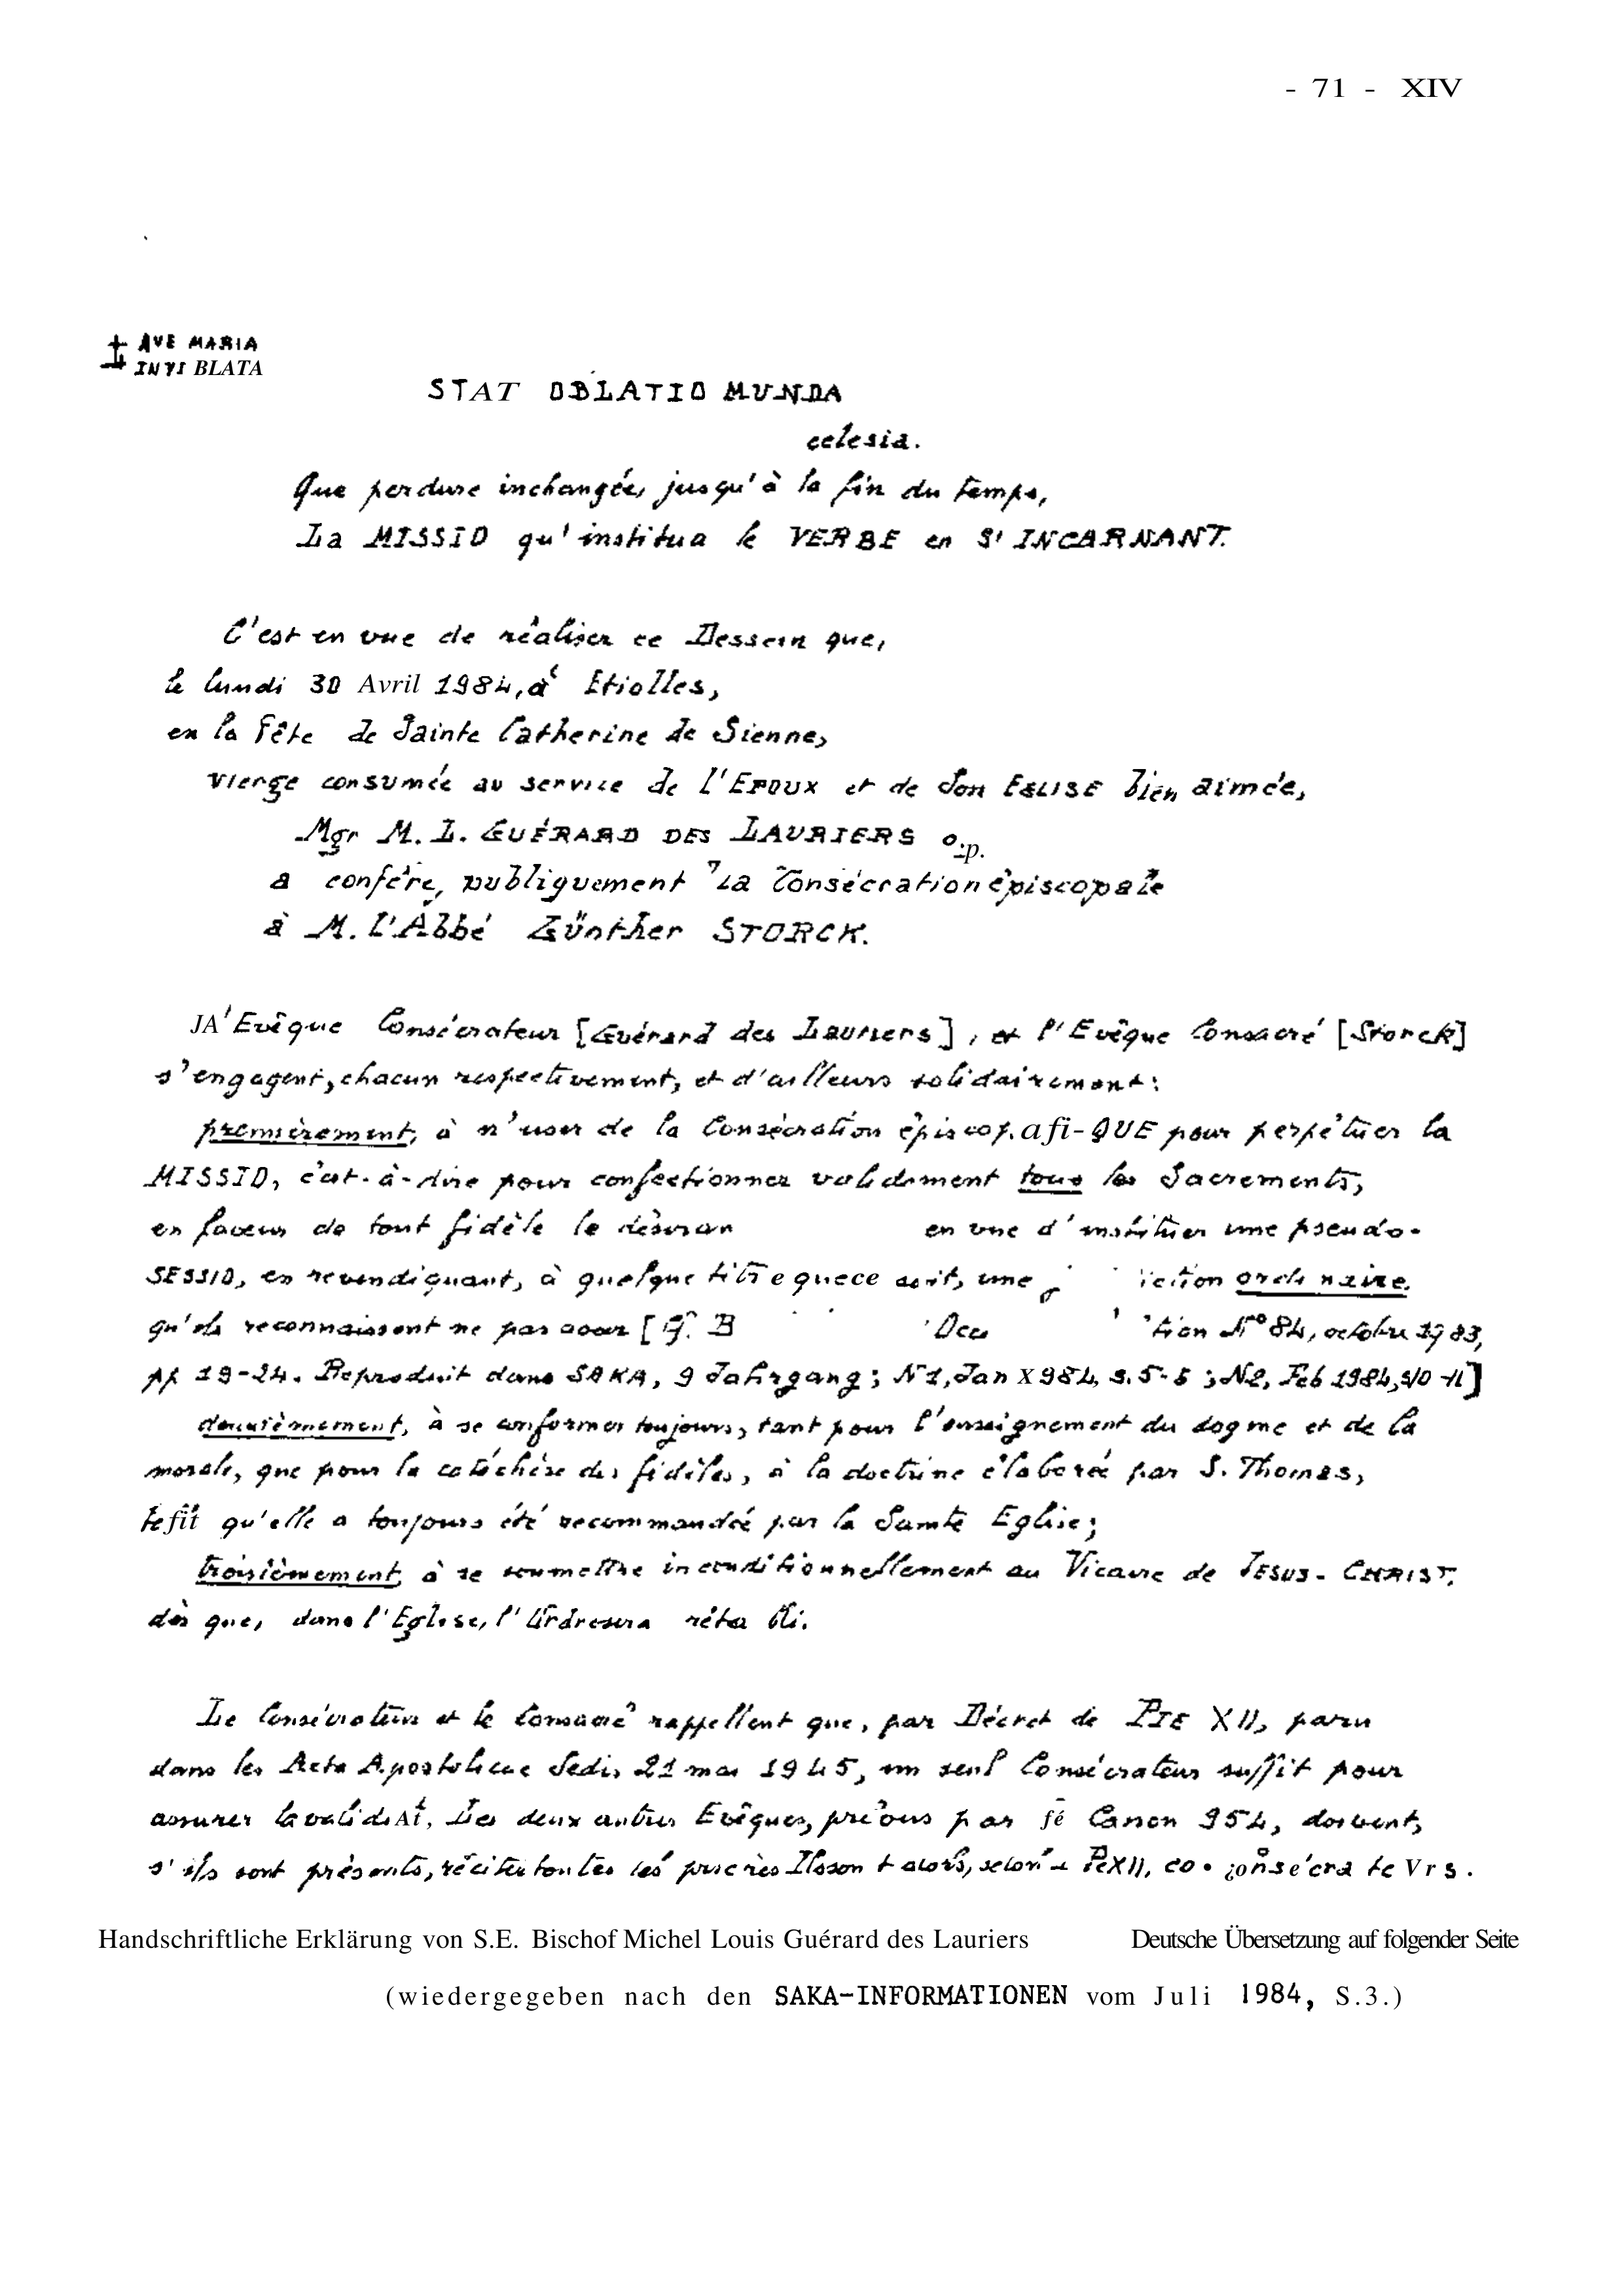 - 71 - XIV
AVE MARIA
BLATA
STAT OBLATIO MUNDA
celesia.
Que perdure inchangée, jusqu'à la fin du temps,
La MISSIO qu'institua le VERBE en S'INCARNANT.
C'est en vue de réaliser ce Dessein que,
le lundi 30 Avril 1984, à Etiolles,
en la Fête de Sainte Catherine de Sienne,
vierge consumée au service de l'Epoux et de Son EGLISE bien aimée,
Mgr M. L. GUÉRARD DES LAURIERS o.p.
a conféré, publiquement La Consécration épiscopale
à M. l'Abbé Günther STORCK.
JA'Evêque Consécrateur [Guérard des Lauriers], et l'Evêque Consacré [Storck]
s'engagent, chacun respectivement, et d'ailleurs solidairement:
premièrement, à n'user de la Consécration épiscop. afi-QUE pour perpétuer la
MISSIO, c'est-à-dire pour confectionner validement tous les Sacrements,
en faveur de tout fidèle le désiran en vue d'instituer une pseudo-
SESSIO, en revendiquant, à quelque titre que ce soit, une iction ordinaire.
qu'ils reconnaissent ne pas avoir [ B Occ tion N° 84, octobre 1983,
pp 19-24. Reproduit dans SAKA, 9 Jahrgang; N 1, Jan X984, S. 5-6; N2, Feb 1984, S10-11]
deuxièmement, à se conformer toujours, tant pour l'enseignement du dogme et de la
morale, que pour la catéchèse des fidèles, à la doctrine élaborée par S. Thomas,
tefit qu'elle a toujours été recommandée par la Sainte Eglise;
troisièmement, à se soumettre inconditionnellement au Vicaire de JESUS-CHRIST,
dès que, dans l'Eglise, l'Ordre sera rétabli.
Le Consécrateur et le Consacré rappellent que, par Décret de PIE XII, paru
dans les Acta Apostolicae Sedis 21 mai 1945, un seul Consécrateur suffit pour
assurer la validiAt, Les deux autres Evêques, prévus par fé Canon 954, doivent,
s'ils sont présents, réciter toutes les prières Ils sont alors, selon PeXII, co-consécrateVrs.
Handschriftliche Erklärung von S.E. Bischof Michel Louis Guérard des Lauriers Deutsche Übersetzung auf folgender Seite
(wiedergegeben nach den SAKA-INFORMATIONEN vom Juli 1984, S.3.)